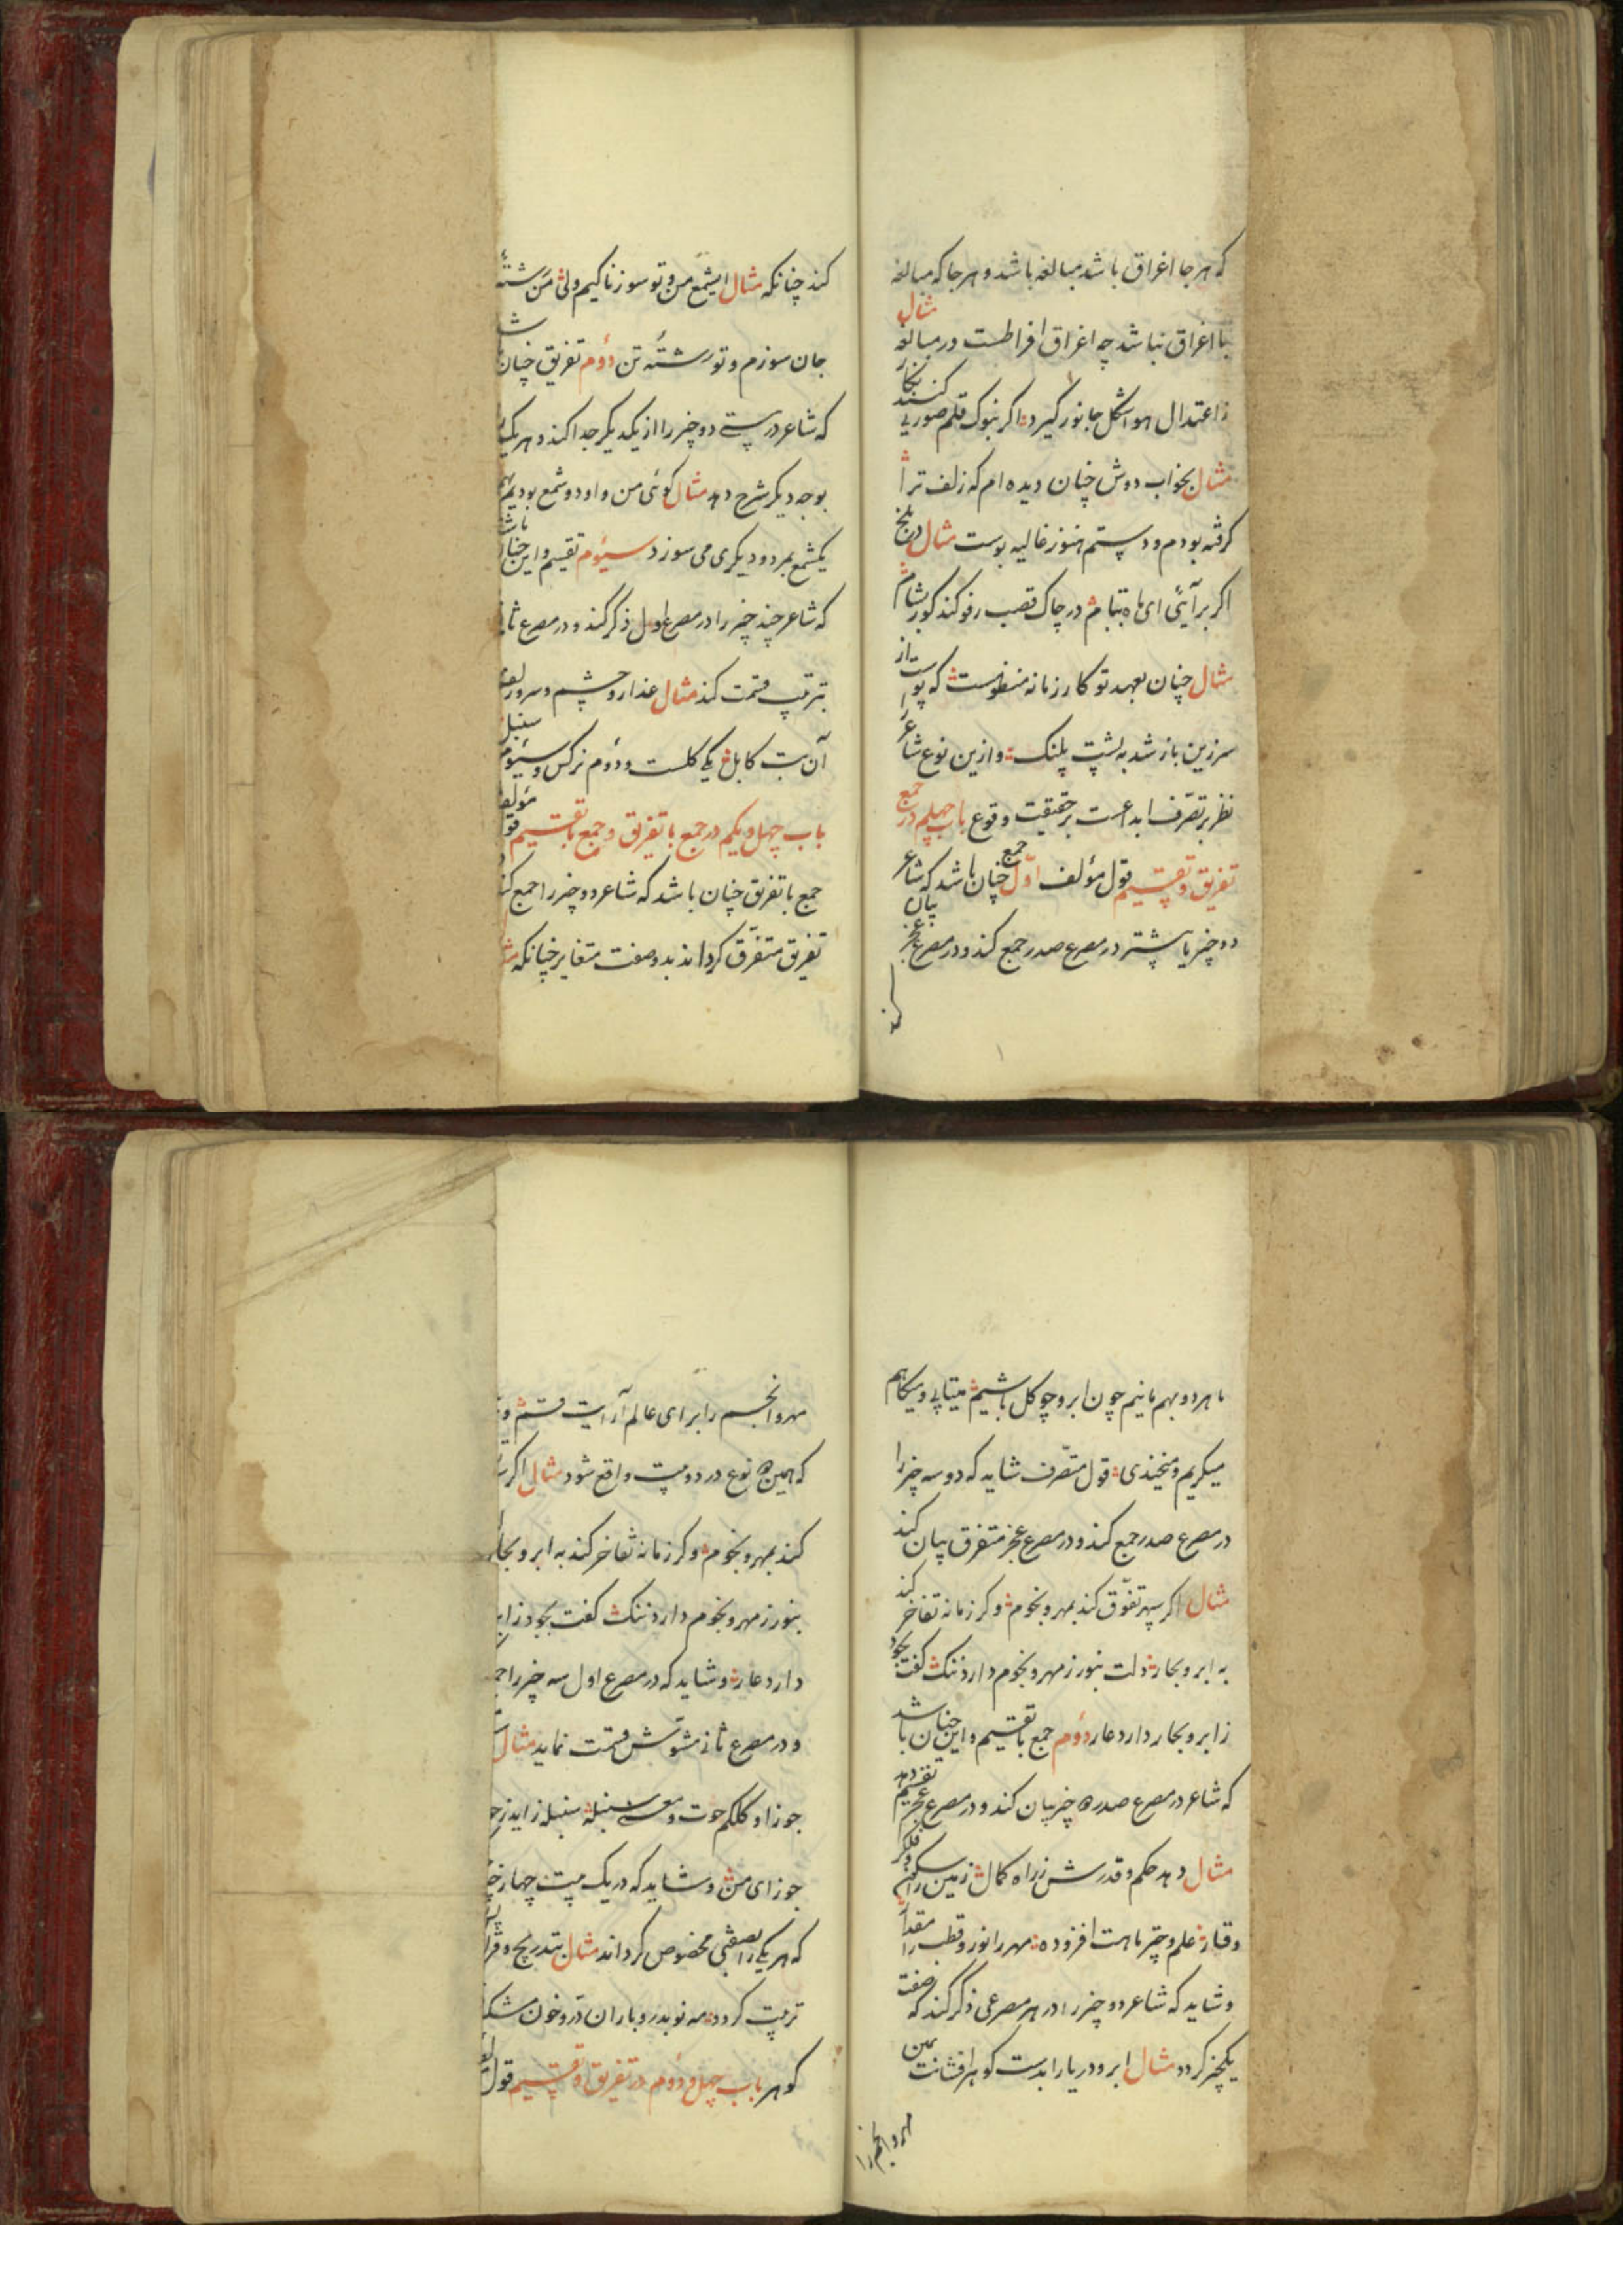 که هر جا اغراق باشد مبالغه باشد و هر جا که مبالغه
با اغراق نباشد چه اغراق افراطست در مبالغه مثال
ز اعتدال هوا شکل جانور گیرد اگر بنوک قلم صورتی کنند نگار
مثال بخواب دوش چنان دیده ام که زلف ترا
گرفته بودم و دستم هنوز غالیه بوست مثال
اگر برآیی ای ماه در چاک قصب رفو کند کور
مثال چنان بعهد تو کار زمانه منظومست که پوست از
سر زین باز شد به پشت پلنک وازین نوع شاعر
نظر بر تصرف ابداعست بر حقیقت وقوع باب چهلم در جمع
تفریق و تقسیم قول مؤلف اول جمع چنان باشد که شاعر
دو چیز یا پیشتر در مصرع صدر جمع کند و در مصرع عجز بیان
کند
کند چنانکه مثال ایشمع من و تو سوزناکیم ولی من رشتهٔ
جان سوزم و تو رشتهٔ تن دوم تفریق چنان باشد
که شاعر درستی دو چیز را از یکدیگر جدا کند و هر یک
بوجه دیگر شرح دهد مثال گوئی من و او دو شمع بودیم بهم
یکشمع بمرد و دیگری می سوزد سیؤم تقسیم و این چنان باشد
که شاعر چند چیز را در مصرع اول ذکر کند و در مصرع ثانی
بترتیب قسمت کند مثال عذار و چشم و سر زلف
آن بت کابل یکی گلست و دوم نرکس و سیؤم سنبل
باب چهل و یکم در جمع با تفریق و جمع با تقسیم قول مؤلف
جمع با تفریق چنان باشد که شاعر دو چیز را جمع کند
تفریق متفرق کرداند بدو صفت متغایر چنانکه مثال
ما هر دو بهم مانیم چون ابر و چو کل باشیم میتابی و میکاهم
میکریم و میخندی قول متصرف شاید که دو سه چیز را
در مصرع صدر جمع کند و در مصرع عجز متفرق بیان کند
مثال اکر سپهر تفوق کند بمهر و نجوم و کر زمانه تفاخر کند
به ابر و بحار دلت بنور ز مهر و نجوم دارد ننک کفت بجود
ز ابر و بحار دارد عار دوم جمع با تقسیم و این چنان باشد
که شاعر در مصرع صدر چیز بیان کند و در مصرع عجز تقسیم دهد
مثال دهد حکم و قدرش ز راه کمال زمین را سکون و فلک را
وقار علم و چتر ماهت افزوده مهر را نور و قطب را مقدار
و شاید که شاعر دو چیز را در هر مصرعی ذکر کند که صفت
یکچیز کردد مثال ابر و دریا را بدست کوهر افشانت یمین
مهر و انجم را
مهر و انجم را برای عالم آرایت قسم و
که همین نوع در دو بیت واقع شود مثال اکر
کند بمهر و نجوم و کر زمانه تفاخر کند به ابر و بحار
بنور ز مهر و نجوم دارد ننک کفت بجود ز ابر
دارد عار و شاید که در مصرع اول سه چیز را جمع
و در مصرع ثانی مشوش قسمت نماید مثال
جوزا و کلکم حوت و معنی سنبله سنبله زاید ز
جوزای من و شاید که در یک بیت چهار چیز
که هر یکی را بصفتی مخصوص کرداند مثال بتدریج و
تربیت کردد مه نو بدر و باران در و خون مشک
کوهر باب چهل و دوم در تفریق و تقسیم قول